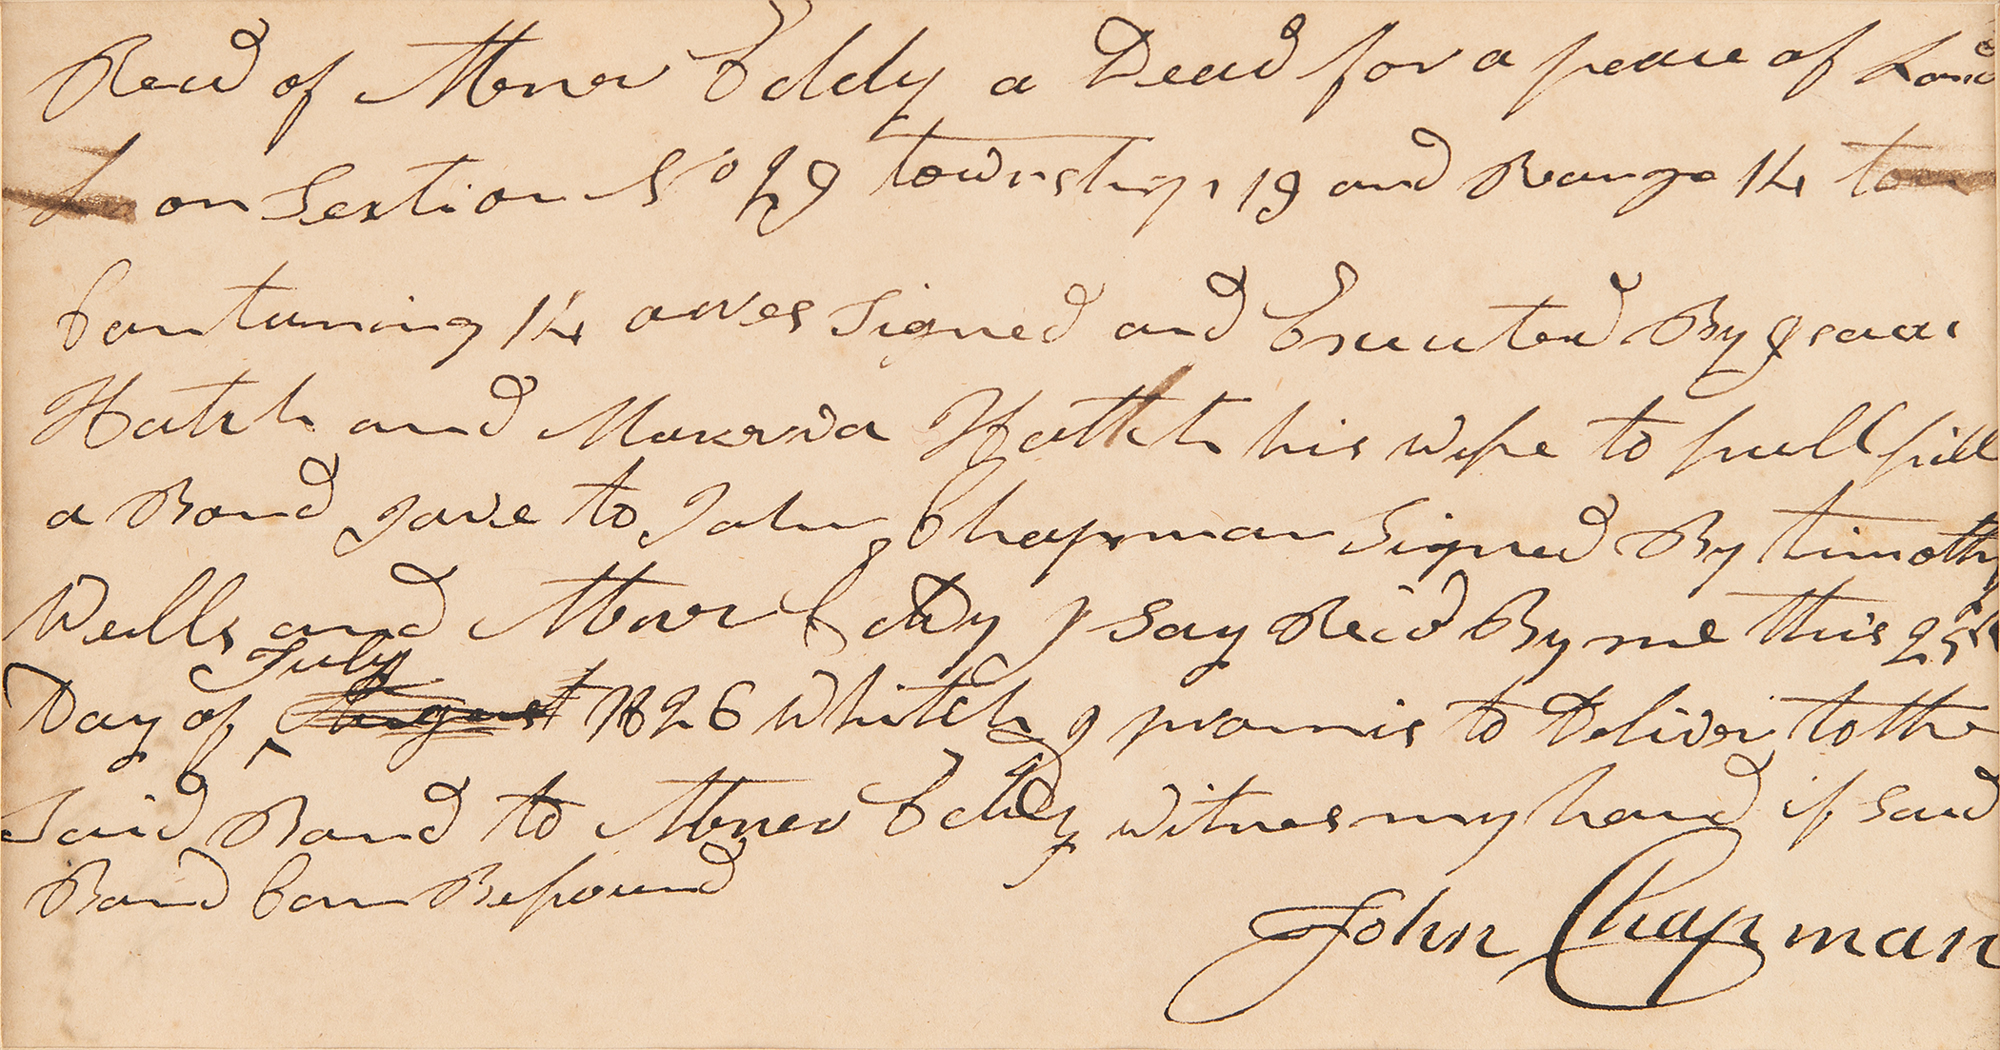 Recd of Abner Eddy a Dead for a peace of Land
on Section No 29 township 19 and Range 14
Contuming 14 acres Signed and Executed By Isaac
Hatch and Hatch his wife to full fill
a Bond gave to John Chapman Signed By timothy
Wells and Abner Eddy I Say Recd By me this 25th
July
Day of August 1826 Whitch I promis to Deliver to the
Said Bond to Abner Eddy witnes my hand if Said
Bond Can Befound
John Chapman